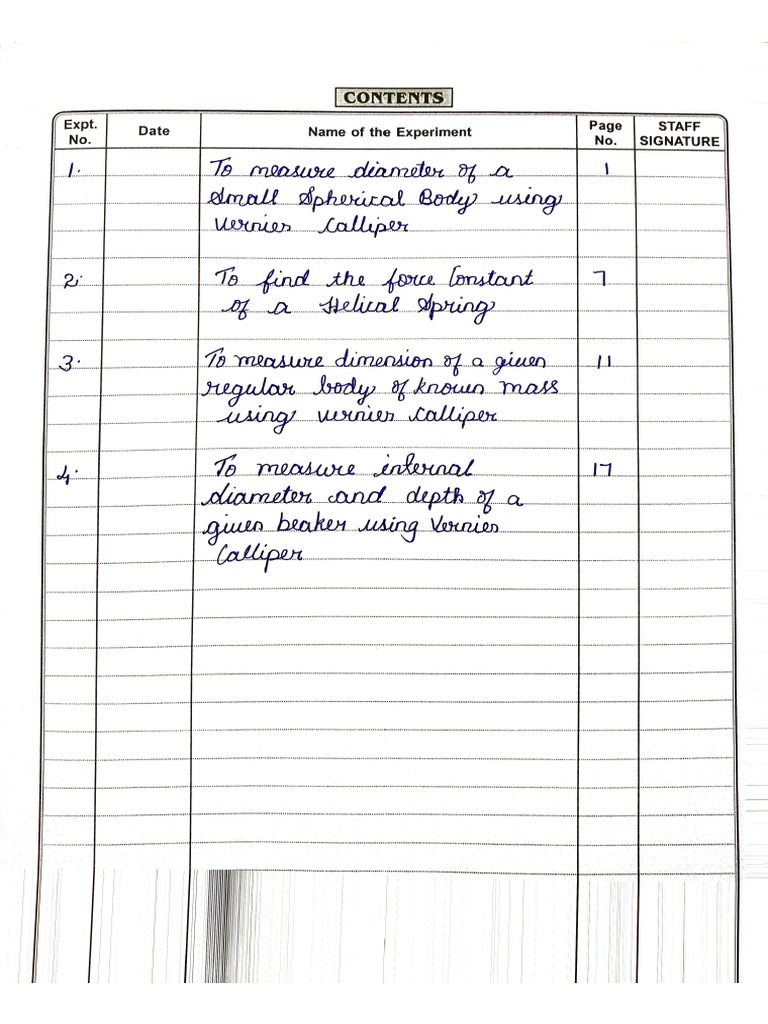 CONTENTS
Expt. No. Date Name of the Experiment Page No. STAFF SIGNATURE
1. To measure diameter of a 1
Small Spherical Body using
Vernier Calliper
2. To find the force Constant 7
of a Helical Spring
3. To measure dimension of a given 11
regular body of known mass
using vernier Calliper
4. To measure internal 17
diameter and depth of a
given beaker using Vernier
Calliper